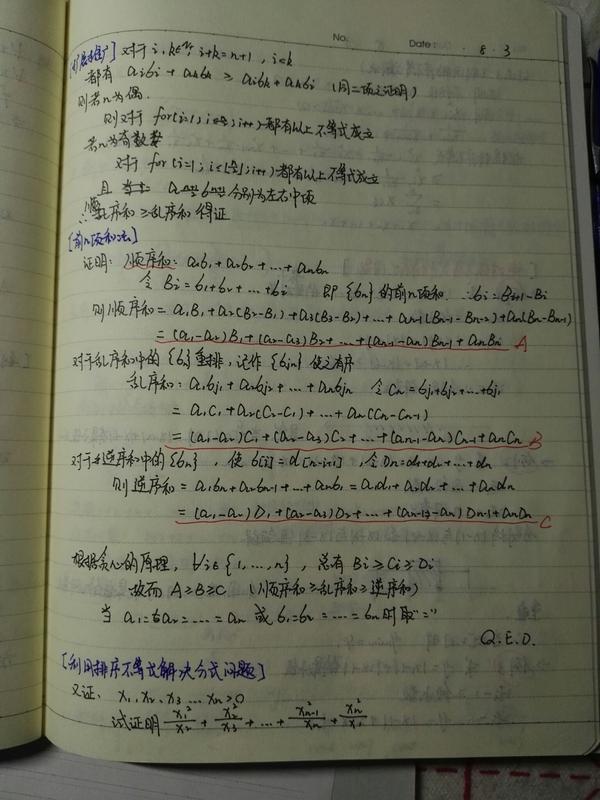 No.
Date: 8.3
[扩展推广] 对于 i, k∈N*, i+k=n+1, i<k
都有 aᵢbᵢ + aₖbₖ ≥ aᵢbₖ + aₖbᵢ (同二项之证明)
则若n为偶.
则对于 for(i=1; i≤; i++) 都有以上不等式成立
若n为奇数
对于 for (i=1; i≤; i++) 都有以上不等式成立
且 分别为左右中项
∴顺序和 ≥ 乱序和 得证
[前n项和法]
证明: 顺序和: a₁b₁ + a₂b₂ + … + aₙbₙ
令 Bᵢ = b₁+b₂+ … +bᵢ 即 {bₙ} 的前n项和. ∴bᵢ=Bᵢ₊₁-Bᵢ
则顺序和 = a₁B₁ + a₂(B₂-B₁) + a₃(B₃-B₂) + … + aₙ₋₁(Bₙ₋₁-Bₙ₋₂) + aₙ(Bₙ-Bₙ₋₁)
= (a₁-a₂)B₁ + (a₂-a₃)B₂ + … + (aₙ₋₁-aₙ)Bₙ₋₁ + aₙBₙ A
对于乱序和中的 {bₙ} 重排, 记作 {bjₙ} 使之有序
乱序和: a₁bj₁ + a₂bj₂ + … + aₙbjₙ 令 Cₙ = bj₁+bj₂+…+bjₙ
= a₁C₁ + a₂(C₂-C₁) + … + aₙ(Cₙ-Cₙ₋₁)
= (a₁-a₂)C₁ + (a₂-a₃)C₂ + … + (aₙ₋₁-aₙ)Cₙ₋₁ + aₙCₙ B
对于逆序和中的 {bₙ}, 使 b[i] = d[n-i+1], 令 Dₙ=d₁+d₂+…+dₙ
则 逆序和 = a₁bₙ + a₂bₙ₋₁ + … + aₙb₁ = a₁d₁ + a₂d₂ + … + aₙdₙ
= (a₁-a₂)D₁ + (a₂-a₃)D₂ + … + (aₙ₋₁-aₙ)Dₙ₋₁ + aₙDₙ C
根据贪心的原理, ∀i∈{1,…,n}, 总有 Bᵢ ≥ Cᵢ ≥ Dᵢ
故而 A≥B≥C (顺序和≥乱序和≥逆序和)
当 a₁=a₂=…=aₙ 或 b₁=b₂=…=bₙ 时取"="
Q.E.D.
[利用排序不等式解决分式问题]
又证. x₁, x₂, x₃ … xₙ > 0
试证明 x₁²/x₂ + x₂²/x₃ + … + xₙ₋₁²/xₙ + xₙ²/x₁